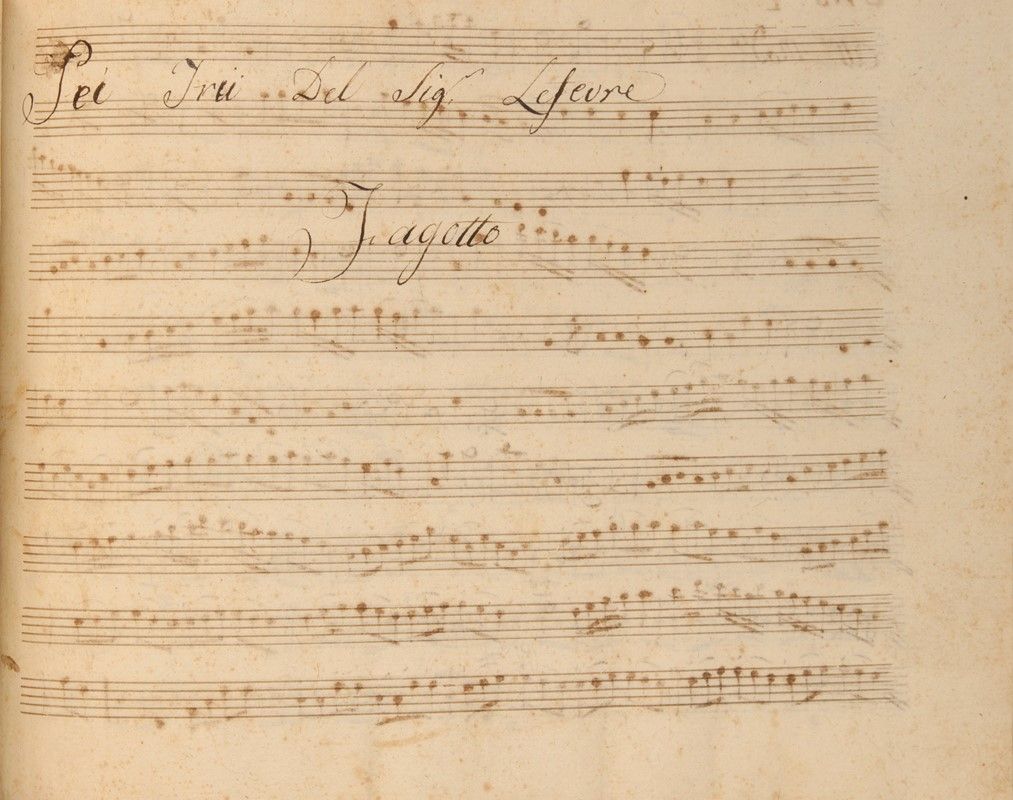 Sei Trii Del Sig.r Lefevre
Fagotto